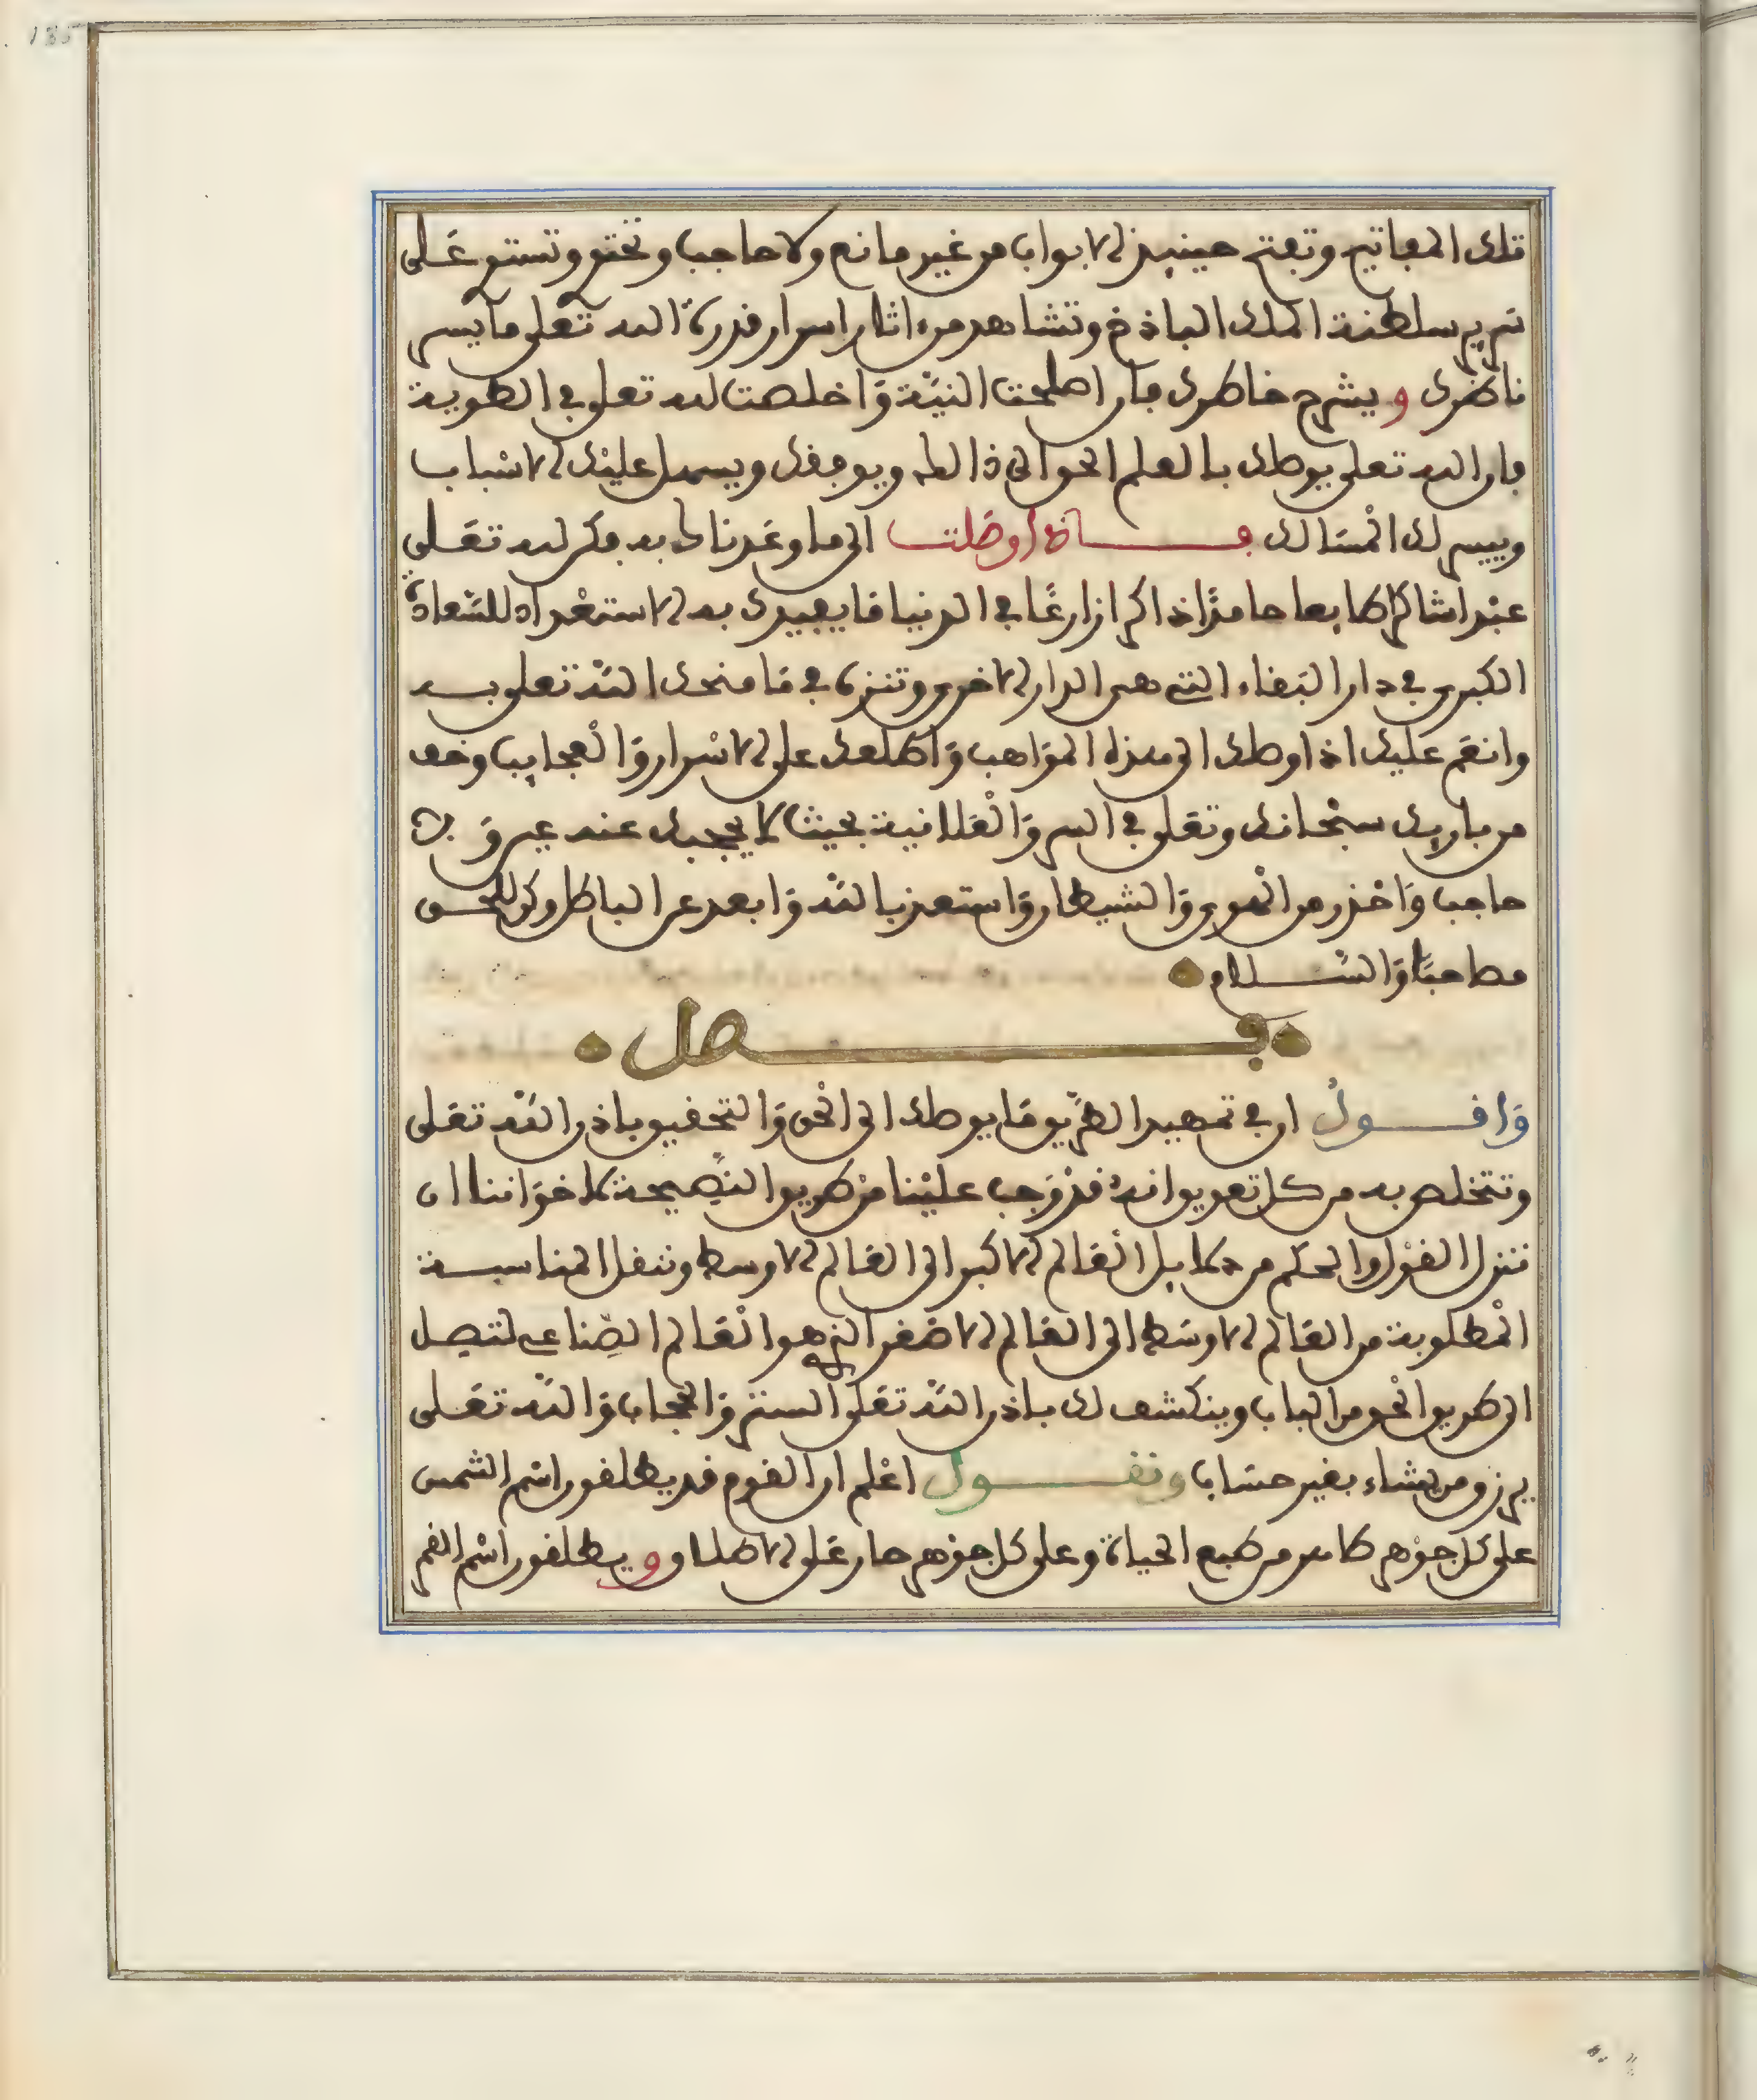 تلك المفاتيح وتفتح حينيذ الابواب من غير مانع ولا حاجب وتختو وتستو على
سرير سلطنة الملك الباذخ وتشاهد من اثار اسرار قدرة الله تعلى ما يسر
ناظرك ويشرح خاطرك فان اصلحت النية واخلصت لله تعلى في الطوية
فان الله تعلى يوصلك بالعلم الحق الى ذالك ويوفقك ويسهل عليك الاسباب
وييسر لك المسالك فاذا وصلت الى ما وعدناك به فكن لله تعلى
عبدا شاكرا طايعا حامدا ذاكرا زارعا في الدنيا ما يفيدك به الاستعداد للسعادة
الكبرى في دار البقاء التي هي الدار الاخرى وتنزه في ما منحك الله تعلى به
وانعم عليك اذ اوصلك الى هذه المواهب واطلعك على الاسرار والعجايب وخف
من باريك سبحانه وتعلى في السر والعلانية بحيث لا يحجبك عنه
حاجب واحذر من الهوى والشيطان واستعذ بالله وابعد عن الباطل وكن للحق
مصاحبا والسلام
فصل
واقول ان في تمهيد الطريق ما يوصلك الى الحق والتحقيق باذن الله تعلى
وتتخلص به من كل تعويق انه قد وجب علينا من طريق النصيحة لاخواننا ان
ننزل القول والحكم من دلايل العالم الاكبر الى العالم الاوسط وننقل المناسبة
المطلوبة من العالم الاوسط الى العالم الاصغر الذي هو العالم الصناعي لتصل
الى طريق الحق من الباب وينكشف لك باذن الله تعلى الستر والحجاب والله تعلى
يرزق من يشاء بغير حساب ونقول اعلم ان القوم قد يطلقون اسم الشمس
على كل جوهر طاهر من طبع الحياة وعلى كل جوهر حار على الاطلاق ويطلقون اسم القمر